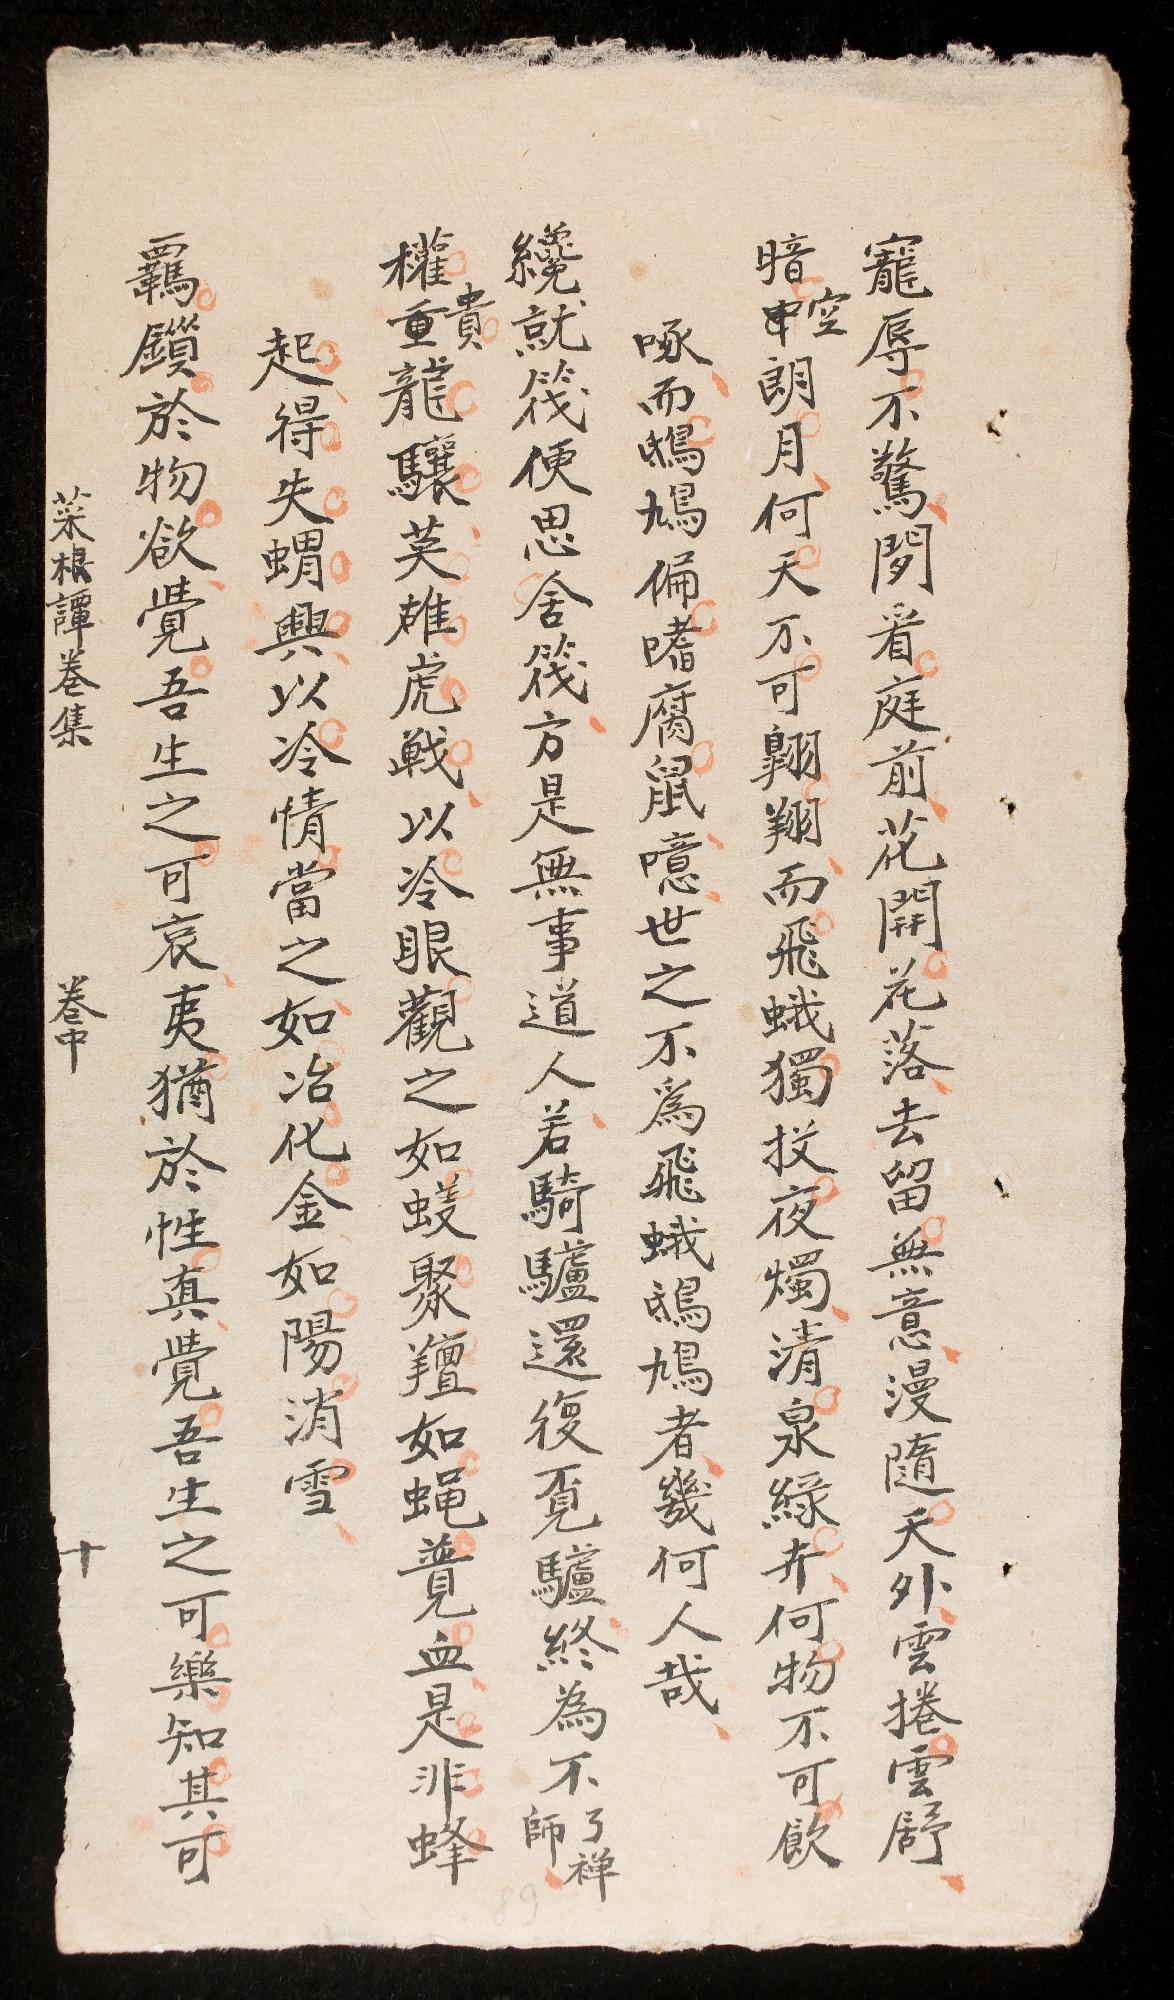 寵辱不驚閒看庭前花開花落去留無意漫隨天外雲捲雲舒
暗空中朗月何天不可翺翔而飛蛾獨投夜燭清泉緑卉何物不可飲
啄而鴟鳩偏嗜腐鼠噫世之不爲飛蛾鴟鳩者幾何人哉
纔就筏便思舍筏方是無事道人若騎驢還復覓驢終為不了禅師
權貴重龍驤英雄虎戰以冷眼觀之如蟻聚羶如蝇競血是非蜂
起得失蝟興以冷情當之如冶化金如陽消雪
羈鎖於物欲覺吾生之可哀夷猶於性真覺吾生之可樂知其可
菜根譚巻集 巻中 十
89